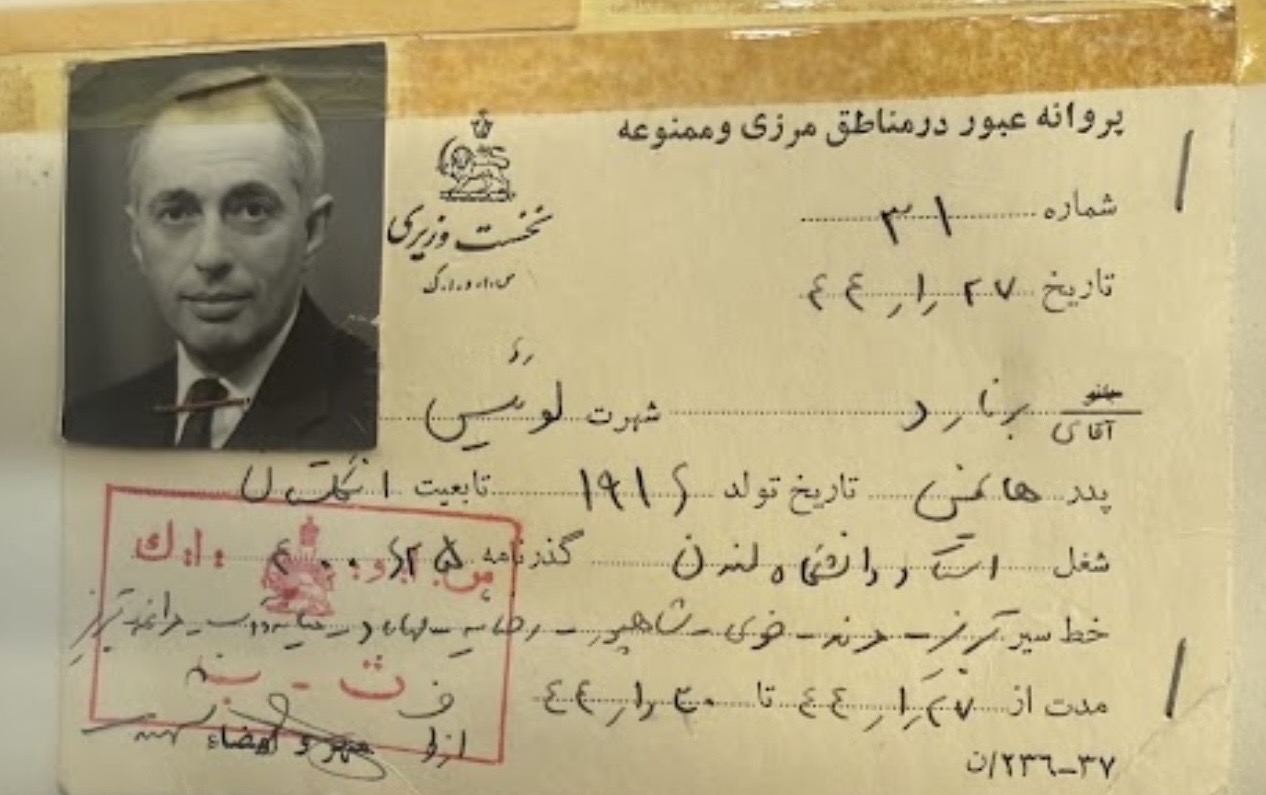 پروانه عبور در مناطق مرزی و ممنوعه
نخست وزیری
س.ا.و.ا.ک
شماره ۳۱
تاریخ ۲۷ ر۱ر ٤٤
بانو
آقای برنارد شهرت لوئیس
پدر هانس تاریخ تولد ۱۹۱٦ تابعیت انگلستان
شغل استاد دانشگاه لندن گذرنامه
خط سیر تبریز - مرند - خوی - شاهپور - رضائیه - مهاباد - میاندوآب - مراغه - تبریز
مدت از ۲۷ ر۱ر ٤٤ تا ۳۰ ر۱ر ٤٤
س.ا.و.ا.ك
مهر و امضاء
۲۳٦-۳۷/ن